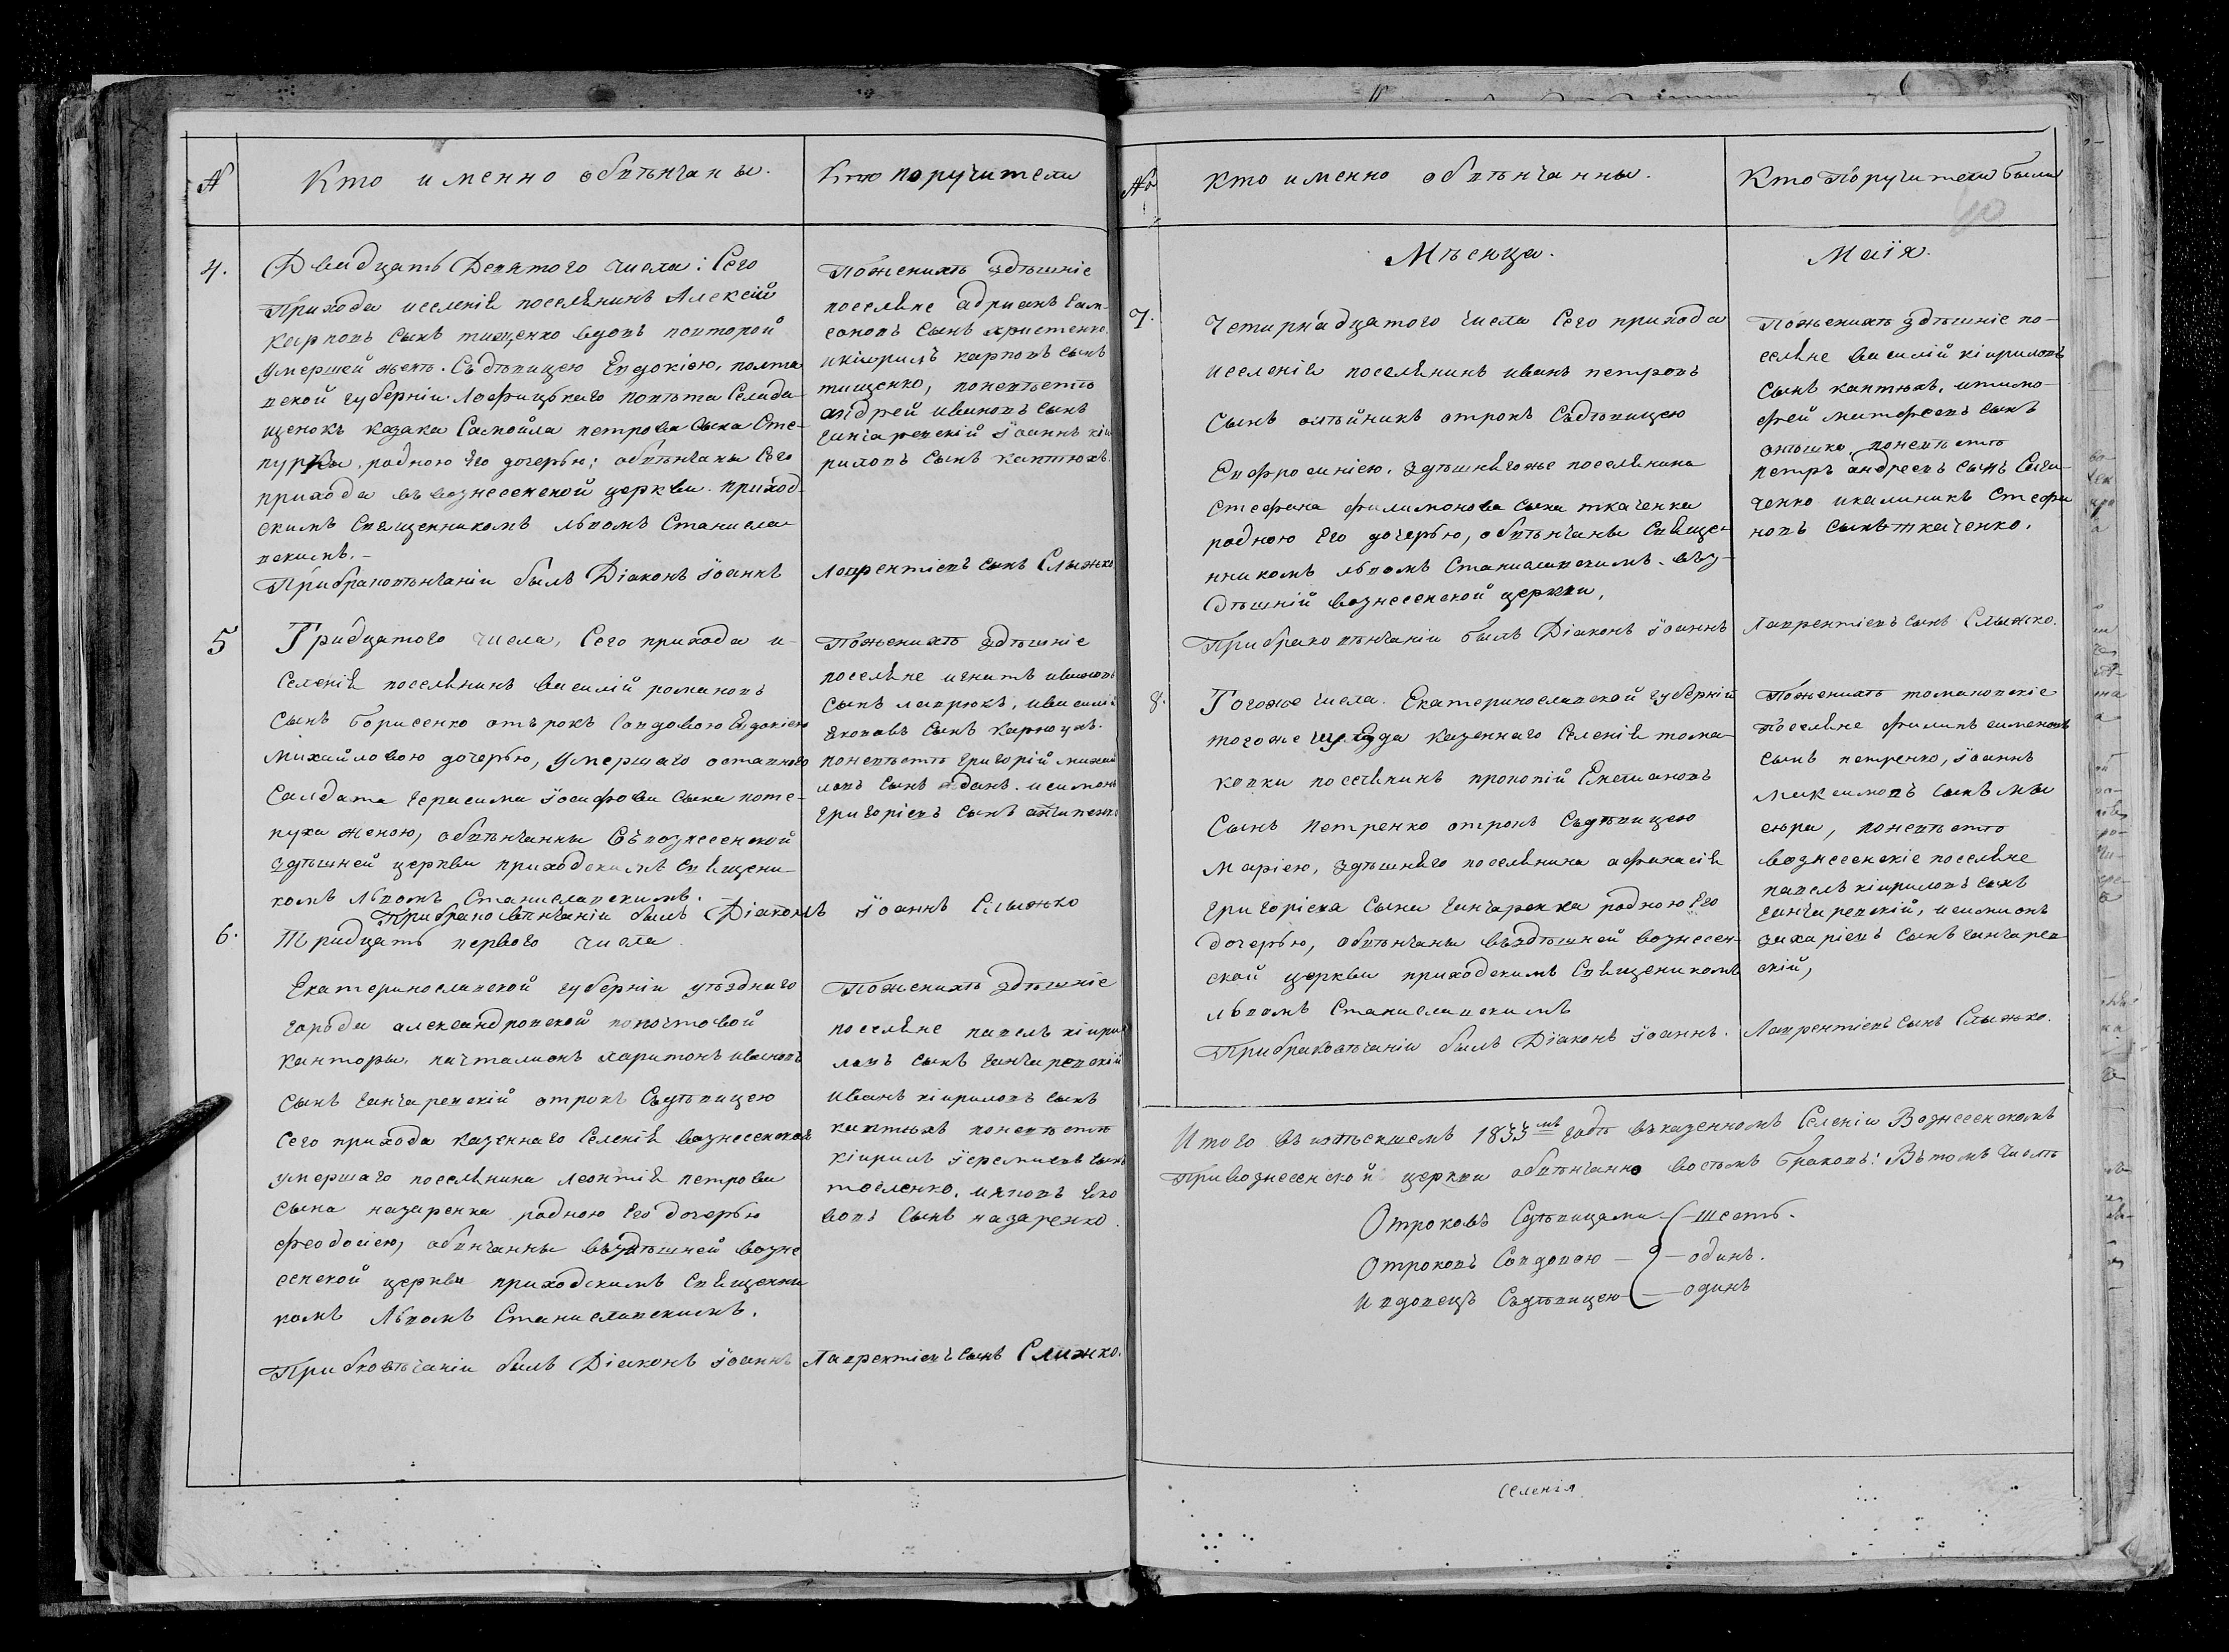 №
Кто именно обвѣнчаны.
Кто поручители
4.
Двадцать Девятого числа: Сего
Прихода иселенія поселянинъ Алексій
карповъ сынъ тищенко вдовъ повторой
умершей женѣ. Съдѣвицею Евдокіею, полта
вской губерніи Лофицькаго повѣта Селида
щенокъ казака Самойла петрова сына Сте-
пурки родною Его дочерью; обвѣнчаны Сего
прихода въ вознесенской церкви. приход-
скимъ Священникомъ львомъ Станисла
вскимъ.-
Прибраковѣнчаніи былъ Діаконъ іоаннъ
Поженихѣ здѣшніе
поселяне адріанъ сам-
соновъ сынъ христенко.
икіирилъ карповъ сынъ
тищенко, поневѣстѣ
андрей ивановъ сынъ
гинчаревскій іоаннъ кіи
риловъ сынъ каптюхъ.
Лаврентіевъ сынъ Слыжко
5
Тридцатого числа, Сего прихода и-
Селенія поселянинъ василій романовъ
сынъ борисенко отърокъ Совдовою Евдокіею
михайловою дочерью, умершаго оставного
Салдата герасима іосифова сына поте-
пуха женою, обвѣнчанны Въвознесенской
здѣшней церкви приходскимъ Священи-
комъ львомъ Станиславскимъ.
Прибраковѣнчаніи былъ Діаконъ іоаннъ Слыжко
Поженихѣ здѣшніе
поселяне игнатъ ивановъ
сынъ лаврюкъ, ивасилі
яковавъ сынъ карпоухъ.
поневѣстѣ григорій михай
ловъ сынъ жданъ. исимонъ
григоріевъ сынъ антипенко
6.
Тридцать первого числа
Екатеринославской губерніи уѣзднаго
города александровской повчтовой
канторы, пачталіонъ харитонъ ивановъ
сынъ гинчаревскій отрокъ Съдѣвицею
Сего прихода казеннаго Селенія вознесенской
умершаго поселянина леонтія петрова
сына назаренка родною Его дочерью
феодосіею, обвнчанны въздѣшней возне
сенской церкви приходскимъ Священни
комъ Львомъ Станиславскимъ.
Прибковѣчаніи былъ Діаконъ іоаннъ
Поженихѣ здѣшніе
поселяне павелъ кіири
ловъ сынъ гинчаревскій
иванъ кіириловъ сынъ
каптюхъ поневѣстѣ
кіирилъ іеремиевъ сынъ
товленко, ияковъ Яко
вовъ сынъ назаренко.
Лаврентіевъ сынъ Слижко.
№
Кто именно обвѣнчанны.
Кто Поручители были
40
Мѣсяца.
Маія.
7.
Четирнадцатого числа Сего прихода
иселенія поселянинъ иванъ петровъ
сынъ олѣйникъ отрокъ Съдѣвицею
Евфросиніею, здѣшнягоже поселянина
Стефана филимонова сына ткаченка
родною Его дочерью, обвѣнчаны Священ-
нникомъ львомъ Станиславскимъ. въз-
дѣшній вознесенской церкви,
Прибраковѣнчаніи былъ Діаконъ іоаннъ
Поженихѣ здѣшніе по-
селяне василій кіириловъ
сынъ каптюхъ, итимо-
фей матфеевъ сынъ
поневѣстѣ
петръ андреевъ сынъ Саги-
ченко икалиникъ Стефа
новъ сынъ ткаченко.
Лаврентіевъ сынъ Слыжко.
8.
Тогоже числа. Екатеринославской губерній
тогоже казеннаго Селенія тома-
ковки поселянинъ прокопій Емелиановъ
Сынъ Петренко отрокъ Съдѣвицею
Маріею, здѣшнего поселянина афанасія
григоріева сына гинчаренка родною Его
дочерью, обвѣнчаны въздѣшней вознесен-
ской церкви приходскимъ Священикомъ
львомъ Станиславскимъ
Прибраковѣчаніи былъ Діаконъ іоаннъ.
Поженихѣ томаковскіе
Поселяне филипъ симеоновъ
сынъ петренко, іоаннъ
максимовъ сынъ мы
сюра, поневѣстѣ
вознесенскіе поселяне
павелъ кіириловъ сынъ
гинчаревскій, исимионъ
захаріевъ сынъ гинчарев
скій,
Лаврентіевъ сынъ Слыжко.
Итого въ истѣкшемъ 1833мъ годѣ въказенномъ Селеніи Вознесенскомъ
Привознесенской церкви обвѣнчанно восѣмъ браковъ: Вътомъ числѣ
Отроковъ Сдѣвицами — шесть.
Отроковъ Совдовою — одинъ.
И вдовецъ Съдѣвицею — одинъ
селенія